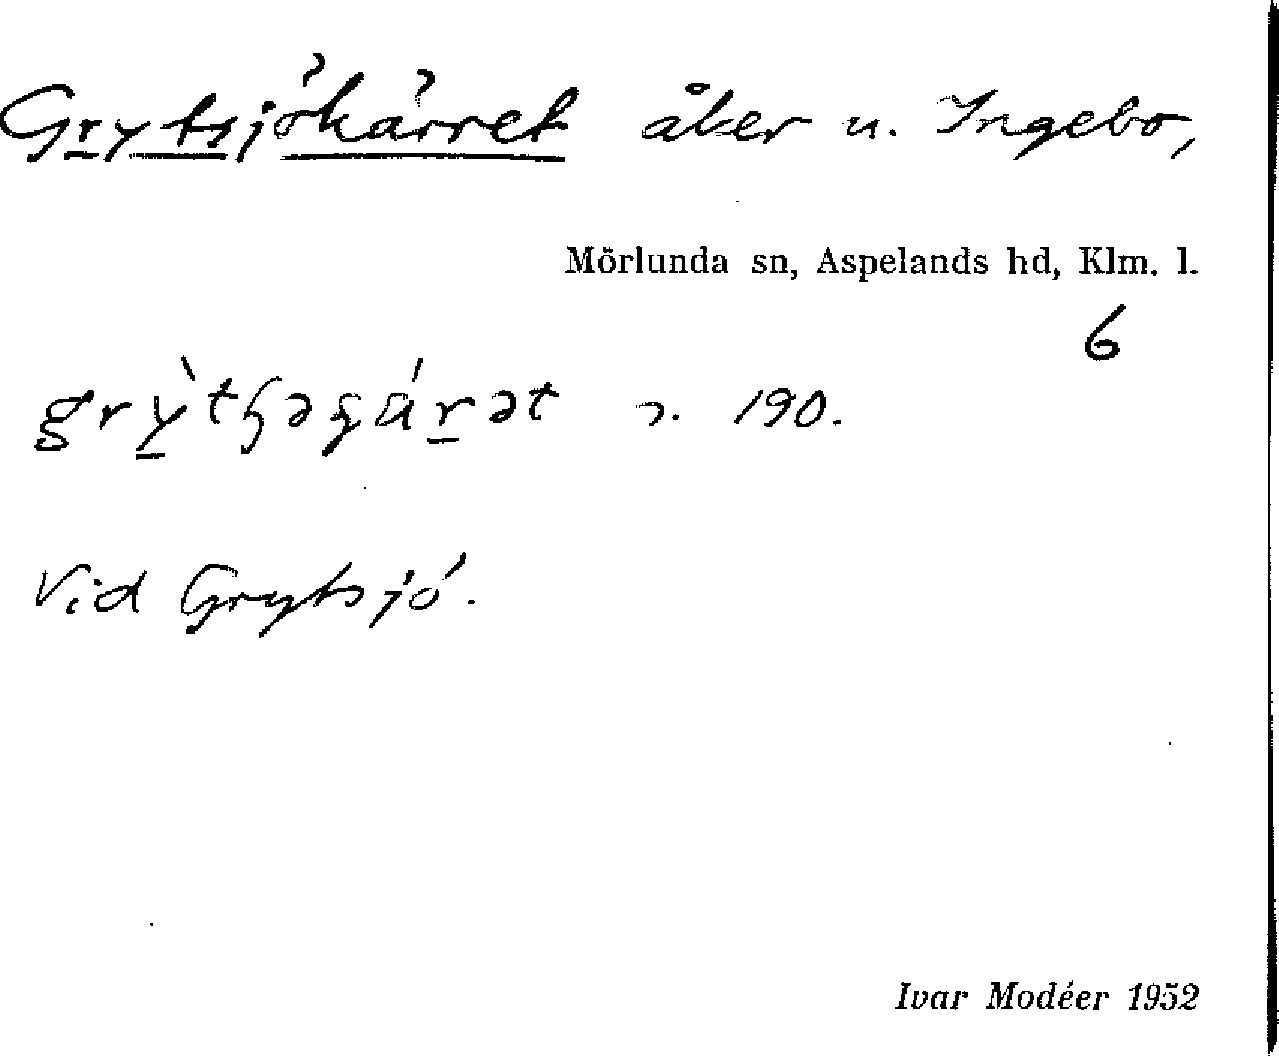 Grytsjökärret åker u. Ingebo,
Mörlunda sn, Aspelands hd, Klm. l.
6
190.
Vid Grytsjö.
Ivar Modéer 1952